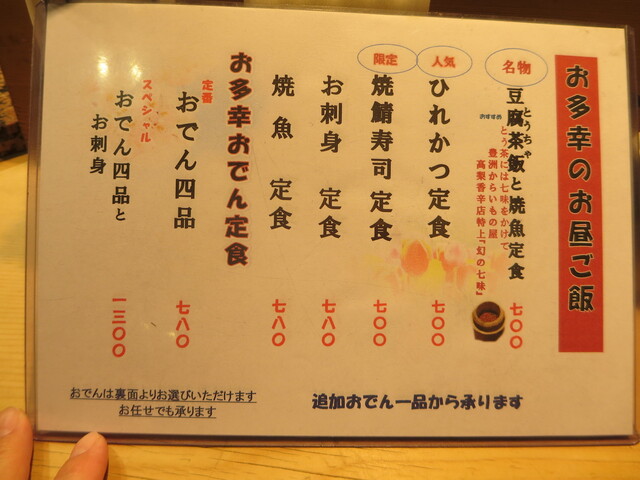 お多幸のお昼ご飯
名物
豆腐茶飯と焼魚定食
とうちゃ
七〇〇
おすすめ
とう茶には七味をかけて
豊洲からいもの屋
高梨香辛店特上「幻の七味」
人気
ひれかつ定食
七〇〇
限定
焼鯖寿司定食
七〇〇
お刺身 定食
七八〇
焼魚 定食
七八〇
お多幸おでん定食
定番
おでん四品
七八〇
スペシャル
おでん四品と
お刺身
一三〇〇
追加おでん一品から承ります
おでんは裏面よりお選びいただけます
お任せでも承ります